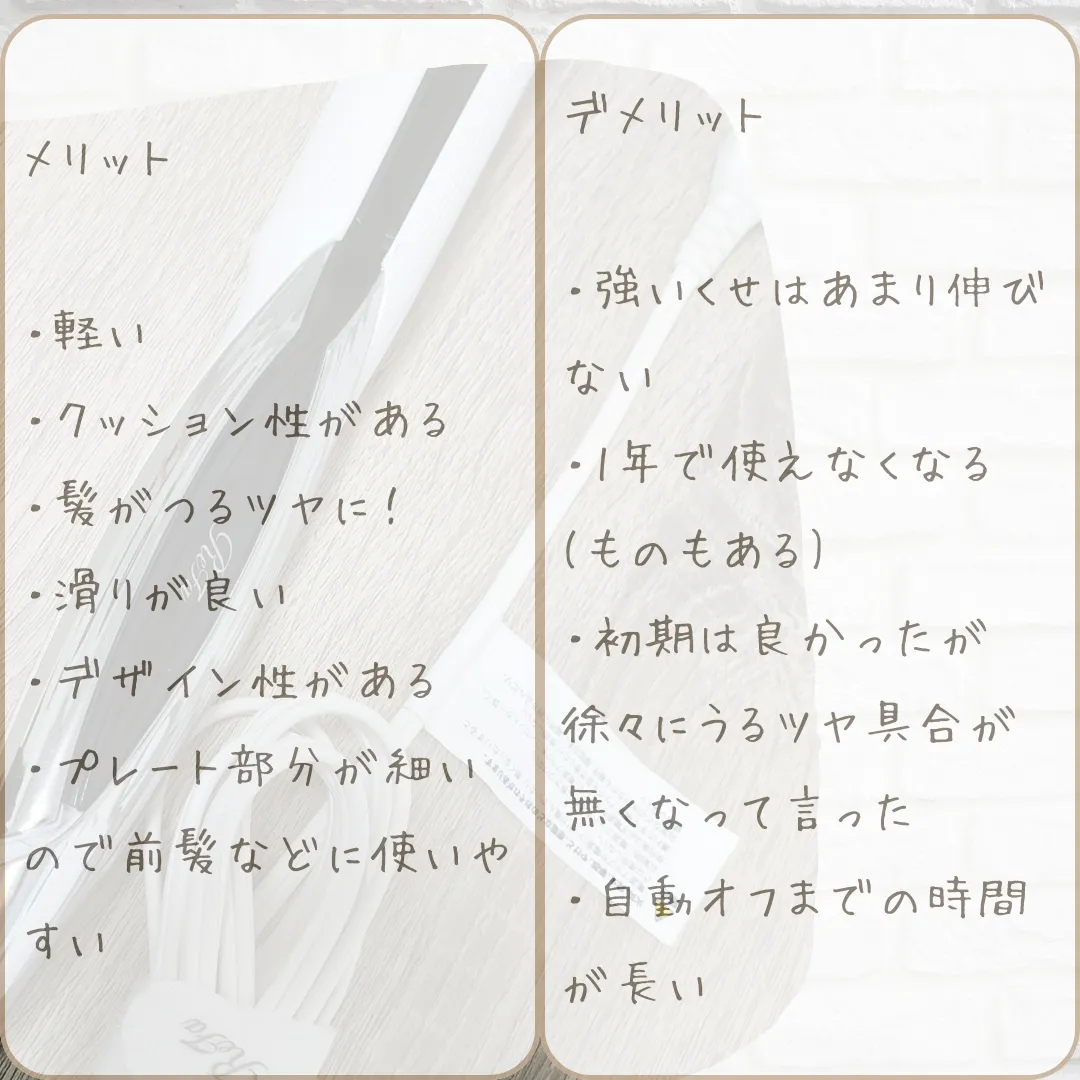 メリット
・軽い
・クッション性がある
・髪がつるツヤに！
・滑りが良い
・デザイン性がある
・プレート部分が細い
ので前髪などに使いや
すい
デメリット
・強いくせはあまり伸び
ない
・1年で使えなくなる
(ものもある)
・初期は良かったが
徐々にうるツヤ具合が
無くなって言った
・自動オフまでの時間
が長い
ReFa
ReFa